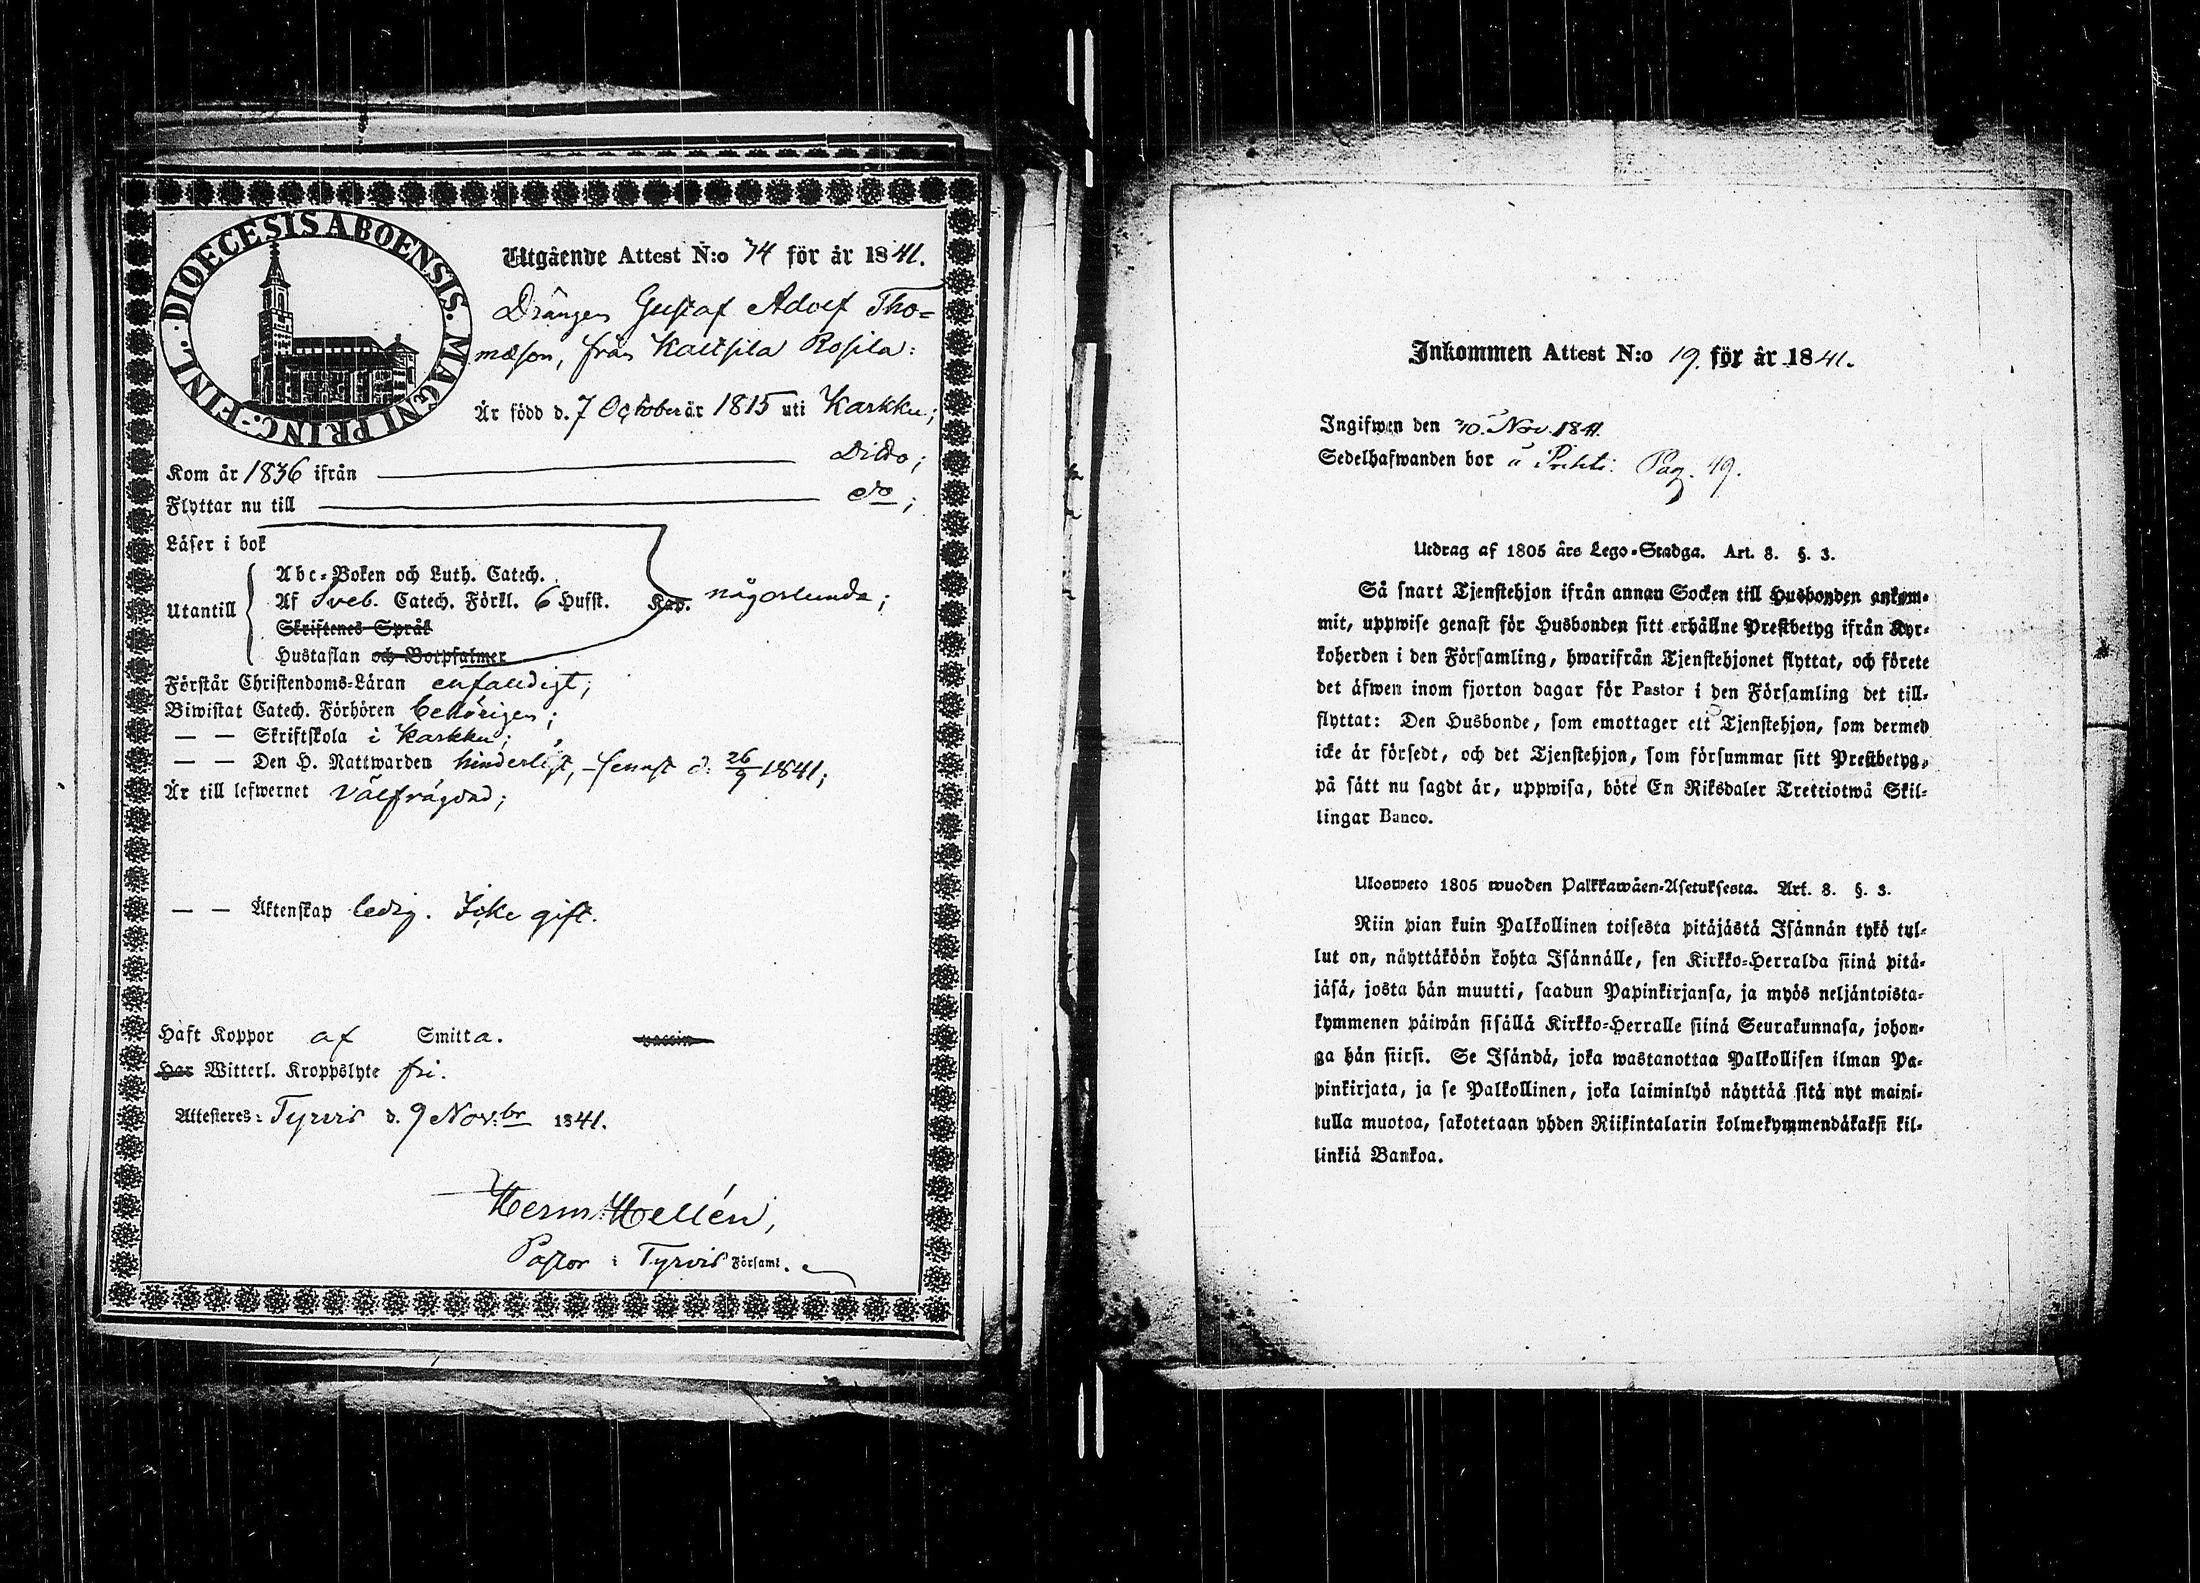 DIOECESIS ABOENSIS. MAGNI PRINC:. FINL.
Utgående Attest N:o 74 för år 1841.
Drängen Gustaf Adolf Tho=
masson, från Kaltsila Rosila:
Är född d. 7 October år 1815 uti Karkku;
Kom år 1836 ifrån Ditto;
Flyttar nu till do;
Läser i bok
Utantill
Abc-Boken och Luth. Catech.
Af Sveb. Catech. Förkl. 6 Hufst. Kap. någorlunda;
Skriftenes Språk
Hustaflan och Botpsalmer
Förstår Christendoms-Läran enfaldigt;
Biwistat Catech. Förhören behörigen;
— — Skriftskola i Karkku;
— — Den H. Nattwarden hinderligt, senast d. 26/9 1841;
Är till lefwernet välfrägdad;
— — Äktenskap ledig. Icke gift.
Haft Koppor af Smitta. vaccin
Har Witterl. Kroppslyte fri.
Attesteres: Tyrvis d. 9 Nov:br 1841.
Herm: Hellén,
Pastor i Tyrvis Församl.
Inkommen Attest N:o 19. för år 1841.
Ingifwen den 30. Nov. 1841.
Sedelhafwanden bor Pag. 49.
Utdrag af 1805 års Lego-Stadga. Art. 8. §. 3.
Så snart Tjenstehjon ifrån annan Socken till Husbonden ankom-
mit, uppwise genast för Husbonden sitt erhållne Prestbetyg ifrån Kyr-
koherden i den Församling, hwarifrån Tjenstehjonet flyttat, och förete
det äfwen inom fjorton dagar för Pastor i den Församling det till-
flyttat: Den Husbonde, som emottager ett Tjenstehjon, som dermed
icke är försedt, och det Tjenstehjon, som försummar sitt Prestbetyg,
på sätt nu sagdt är, uppwisa, böte En Riksdaler Trettiotwå Skil-
lingar Banco.
Ulosweto 1805 wuoden Palkkawäen-Asetuksesta. Art. 8. §. 3.
Niin pian kuin Palkollinen toisesta pitäjästä Isännän tykö tul-
lut on, näyttäköön kohta Isännälle, sen Kirkko-Herralda siinä pitä-
jäsä, josta hän muutti, saadun Papinkirjansa, ja myös neljäntoista-
kymmenen päiwän sisällä Kirkko-Herralle siinä Seurakunnasa, johon-
ga hän siirsi. Se Isändä, joka wastanottaa Palkollisen ilman Pa-
pinkirjata, ja se Palkollinen, joka laiminlyö näyttää sitä nyt maini-
tulla muotoa, sakotetaan yhden Riikintalarin kolmekymmendäkaksi kil-
linkiä Bankoa.